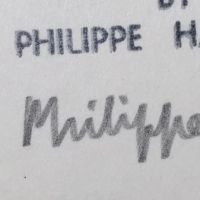 BY
PHILIPPE HA
Philippe